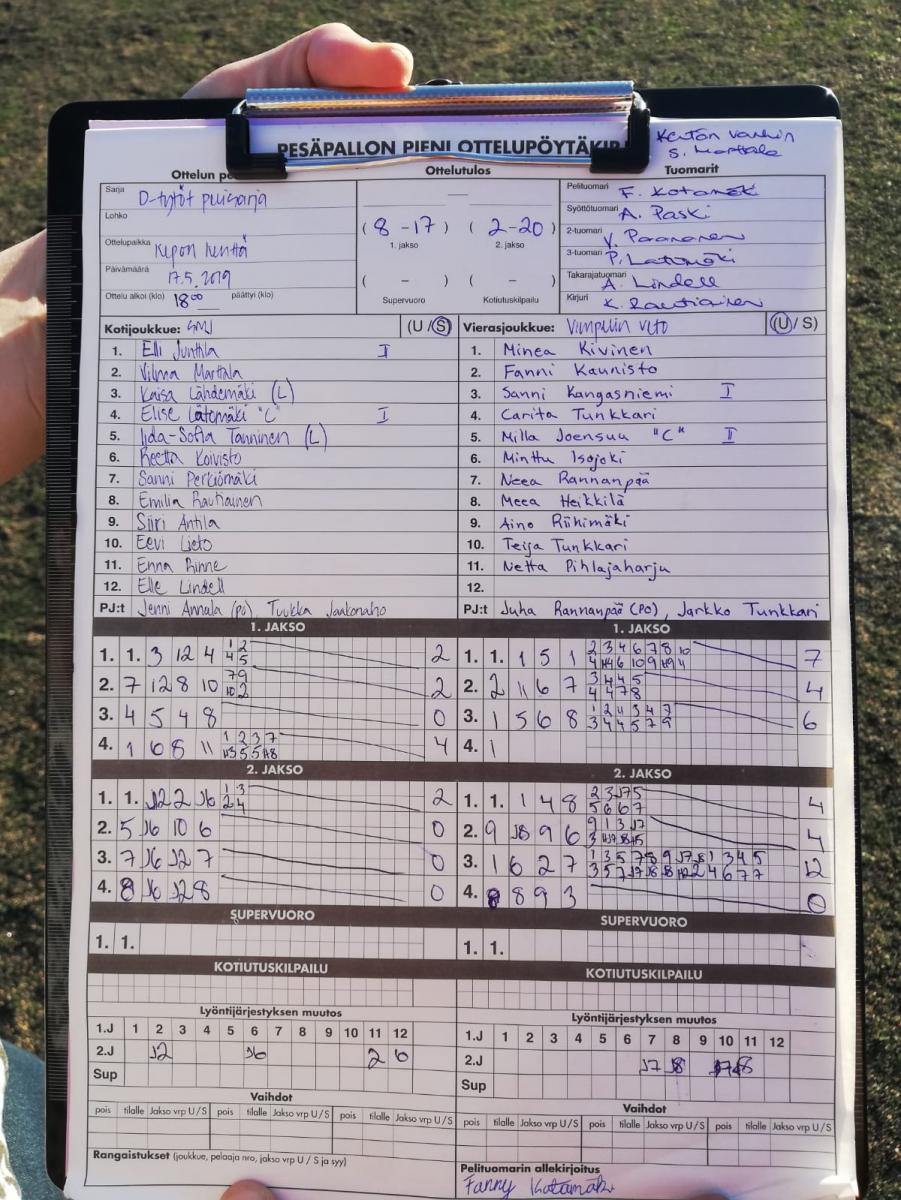 PESÄPALLON PIENI OTTELUPÖYTÄKIR
Kentän vanhin
S. Marttala
Ottelun pe
Ottelutulos
Tuomarit
Sarja D-tytöt puisarja
Lohko
Ottelupaikka Kepon kenttä
Päivämäärä 17.5.2019
Ottelu alkoi (klo) 18⁰⁰ päättyi (klo)
( 8 - 17 ) ( 2 - 20 )
1. jakso 2. jakso
( - ) ( - )
Supervuoro Kotiutuskilpailu
Pelituomari F. Kotamäki
Syöttötuomari A. Paski
2-tuomari V. Paananen
3-tuomari P. Latomäki
Takarajatuomari A. Lindell
Kirjuri K. Rautiainen
Kotijoukkue: SMJ (U / S)
1. Elli Junttila I
2. Vilma Marttala
3. Kaisa Lähdemäki (L)
4. Elise Latomäki "C" I
5. Iida-Sofia Tanninen (L)
6. Reetta Koivisto
7. Sanni Perkiömäki
8. Emilia Rautiainen
9. Siiri Antila
10. Eevi Lieto
11. Enna Rinne
12. Elle Lindell
PJ:t Jenni Annala (PO), Tuukka Jaakonaho
Vierasjoukkue: Vimpelin Veto (U / S)
1. Minea Kivinen
2. Fanni Kaunisto
3. Sanni Kangasniemi I
4. Carita Tunkkari
5. Milla Joensuu "C" II
6. Minttu Isojoki
7. Neea Rannanpää
8. Meea Heikkilä
9. Aino Riihimäki
10. Teija Tunkkari
11. Netta Pihlajaharju
12.
PJ:t Juha Rannanpää (PO), Jarkko Tunkkari
1. JAKSO
1. 1. 3 12 4 1 2 2
4 5
2. 7 12 8 10 7 9 2
10 2
3. 4 5 4 8 0
4. 1 6 8 11 1 2 3 7 4
2. JAKSO
1. 1. J2 2 J6 1 3 2
2 4
2. 5 J6 10 6 0
3. 7 J6 J2 7 0
4. 8 J6 J2 8 0
SUPERVUORO
1. 1.
KOTIUTUSKILPAILU
1. JAKSO
1. 1. 1 5 1 2 3 4 6 7 8 10 7
2. 2 11 6 7 3 4 4 5 4
4 4 7 8
3. 1 5 6 8 1 2 11 3 4 7 6
3 4 4 5 7 9
4. 1
2. JAKSO
1. 1. 1 4 8 2 3 J7 5 4
5 6 6 7
2. 9 J8 9 6 9 1 3 J7 4
3. 1 6 2 7 12
4. 8 9 3 0
SUPERVUORO
1. 1.
KOTIUTUSKILPAILU
Lyöntijärjestyksen muutos
1.J 1 2 3 4 5 6 7 8 9 10 11 12
2.J J2 J6 2 6
Sup
Vaihdot
pois tilalle Jakso vrp U / S pois tilalle Jakso vrp U / S pois tilalle Jakso vrp U / S
Rangaistukset (joukkue, pelaaja nro, jakso vrp U / S ja syy)
Lyöntijärjestyksen muutos
1.J 1 2 3 4 5 6 7 8 9 10 11 12
2.J J7 J8
Sup
Vaihdot
pois tilalle Jakso vrp U / S pois tilalle Jakso vrp U / S pois tilalle Jakso vrp U / S
Pelituomarin allekirjoitus
Fanny Kotamäki